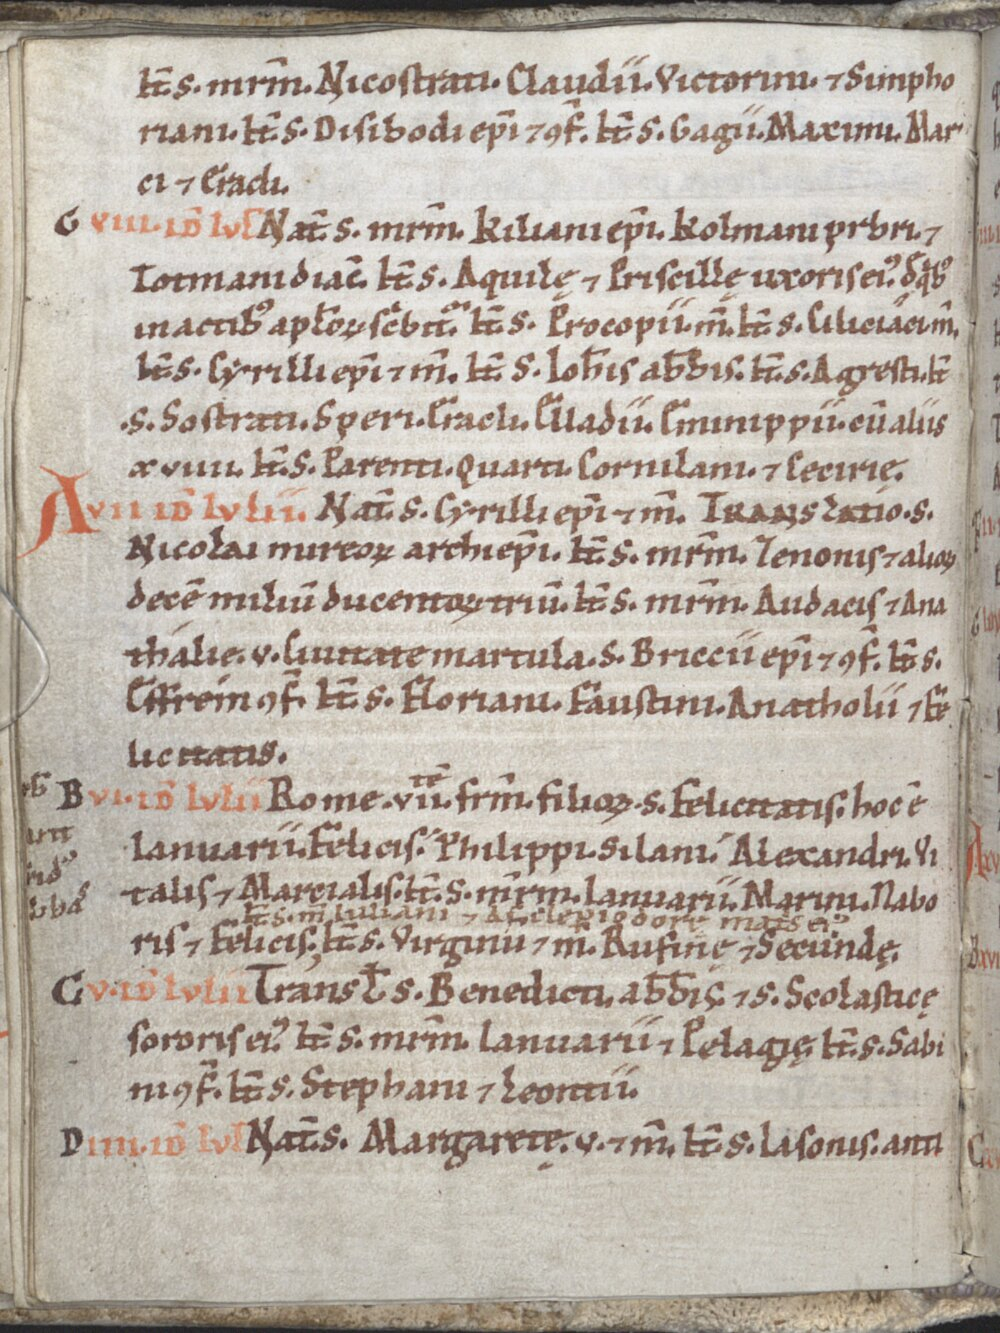 It̄ s. mr̄m. Nicostrati. Claudii. Victorini. ⁊ Simpho
riani. It̄ s. Disibodi ep̄i ⁊ ꝯf. It̄ s. Gagii. Maximi. Mar
ci ⁊ Eracli.
G VIII. ID̄ IVL Nat̄ s. mr̄m. Kiliani ep̄i. Kolmani prb̄ri. ⁊
Totmani diac̄. It̄ s. Aquilę ⁊ Priscillę uxoris ei᷒. de qͥb᷒
in actib᷒ ap̄loꝝ sc̄bit᷑. It̄ s. Procopii. m̄. It̄ s. Ciliciaci m̄.
It̄ s. Cyrilli ep̄i ⁊ m̄. It̄ s. Ioh̄is ab̄bis. It̄ s. Agresti. It̄
.s. Sostrati. Speri. Eracli. Elladii. Eminippii. cū aliis
xviiii. It̄ s. Parenti. Quarti. Cornilani. ⁊ Cecirię.
A VII ID̄ IVLII. Nat̄ s. Cyrilli ep̄i ⁊ m̄. Translatio. s.
Nicolai mireoꝝ archiep̄i. It̄ s. mr̄m. Zenonis ⁊ alioꝝ
decē miliū ducentoꝝ triū. It̄ s. mr̄m. Audacis ⁊ Ana
thalie. v. Ciuitate martula. s. Briccii ep̄i ⁊ ꝯf. It̄ s.
Effrem ꝯf. It̄ s. Floriani. Faustini. Anatholii ⁊ Fe
licitatis.
B VI. ID̄ IVLII Rome. vii.tē frm̄. filioꝝ. s. Felicitatis. hoc ē
Ianuarii. Felicis. Philippi. Silani. Alexandri. Vi
talis ⁊ Marcialis. It̄ s. mr̄m. Ianuarii. Marini. Nabo
It̄ s. m̄ Iuliani ⁊ Asclepiodore matͥs ei᷒
ris ⁊ Felicis. It̄ s. Virginū ⁊ m̄. Rufinę ⁊ Secundę.
C V. ID̄ IVLII Transl̄ s. Benedicti. ab̄bis. ⁊ s. Scolasticę
sororis ei᷒. It̄ s. mr̄m. Ianuarii ⁊ Pelagię. It̄ s. Sabi
ni ꝯf. It̄ s. Stephani ⁊ Leontii.
D IIII. ID̄ IVL Nat̄ s. Margaretę. v. ⁊ m̄. It̄ s. Iasonis. anti